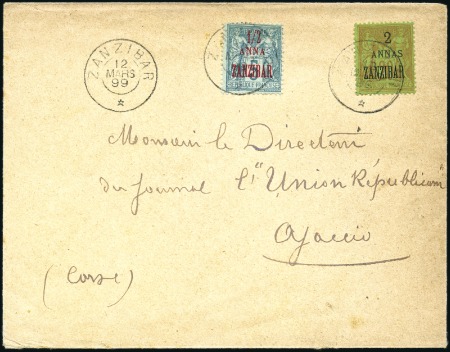 ZANZIBAR
12
MARS
99
1/2
ANNA
ZANZIBAR
5
2
ANNAS
ZANZIBAR
Monsieur le Directeur
du Journal l'"Union Républicaine"
Ajaccio
(Corse)